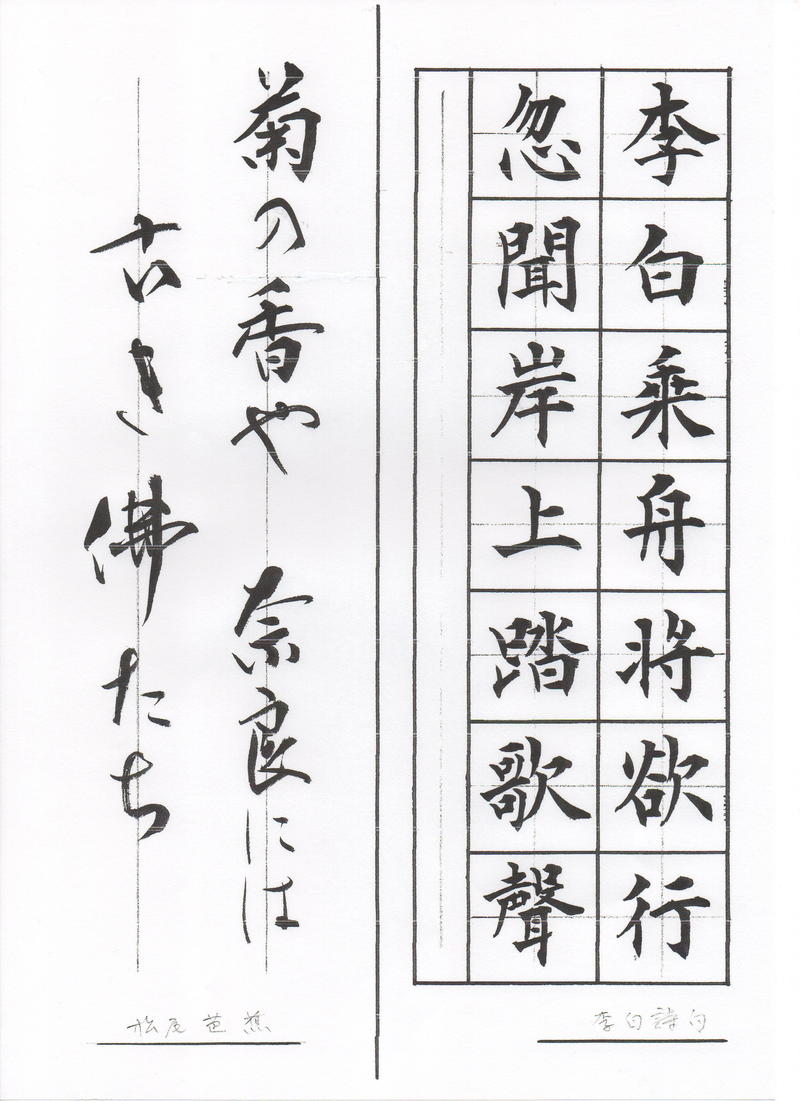 李白乗舟将欲行
忽聞岸上踏歌聲
李白詩句
菊の香や 奈良には
古き佛たち
松尾芭蕉